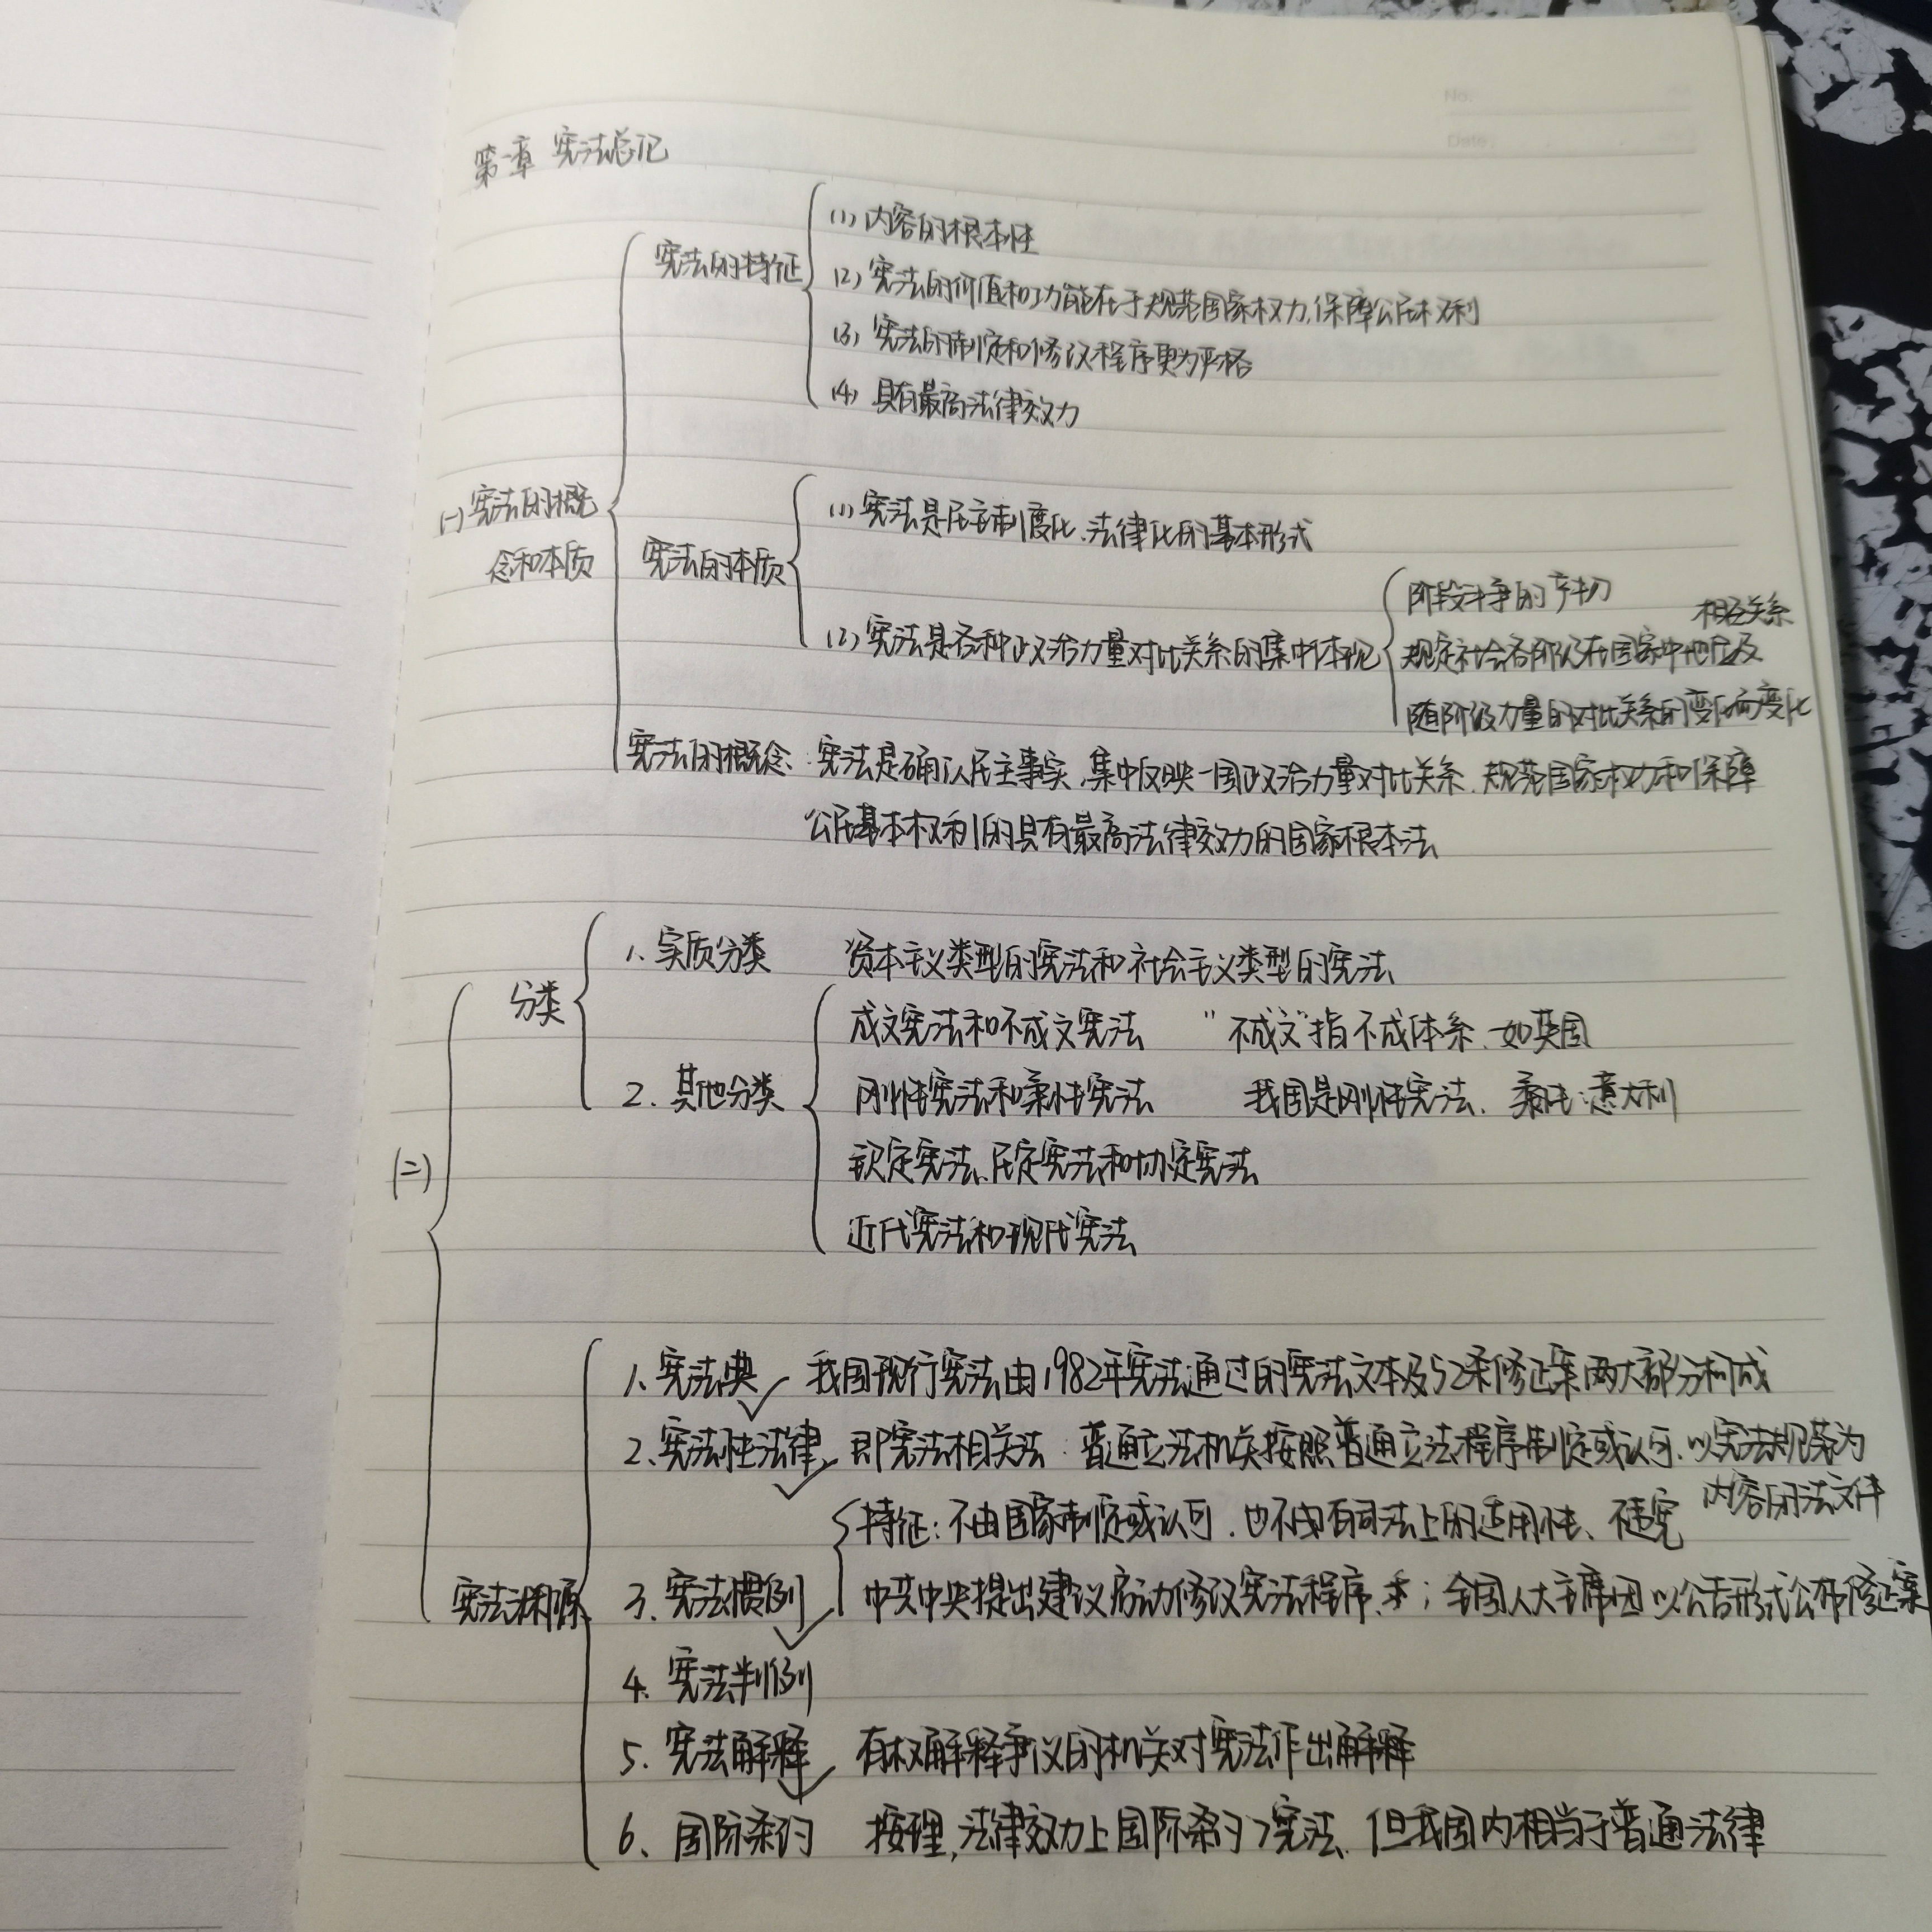 No.
Date
第一章 宪法总记
宪法的特征
(1) 内容的根本性
(2) 宪法的价值和功能在于规范国家权力,保障公民权利
(3) 宪法的制定和修议程序更为严格
(4) 具有最高法律效力
(一) 宪法的概
念和本质
宪法的本质
(1) 宪法是民主制度化、法律化的基本形式
(2) 宪法是各种政治力量对比关系的集中体现
阶段斗争的产物
规定社会各阶级在国家中地位及
相互关系
随阶级力量的对比关系的变化而变化
宪法的概念: 宪法是确认民主事实、集中反映一国政治力量对比关系、规范国家权力和保障
公民基本权利的具有最高法律效力的国家根本法
(二)
分类
1. 实质分类 资本主义类型的宪法和社会主义类型的宪法
2. 其他分类
成文宪法和不成文宪法 "不成文"指不成体系、如英国
刚性宪法和柔性宪法 我国是刚性宪法、柔性:意大利
钦定宪法、民定宪法和协定宪法
近代宪法和现代宪法
宪法渊源
1. 宪法典 我国现行宪法由1982年宪法通过的宪法文本及52条修正案两大部分构成
2. 宪法性法律 即宪法相关法:普通立法机关按照普通立法程序制定或认可、以宪法规范为
内容的法文件
3. 宪法惯例
特征:不由国家制定或认可、也不由有司法上的适用性、不违宪
中共中央提出建议启动修议宪法程序、;全国人大主席团以公告形式公布修正案
4. 宪法判例
5. 宪法解释 有权解释争议的机关对宪法作出解释
6. 国际条约 按理,法律效力上国际条约>宪法、但我国内相当于普通法律